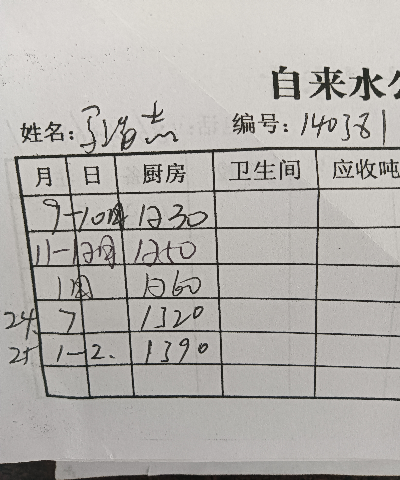 自来水公
姓名: 编号: 140381
月 日 厨房 卫生间 应收吨
9-10月 1230
11-12月 1250
1月 1260
24. 7 1320
25 1-2. 1390